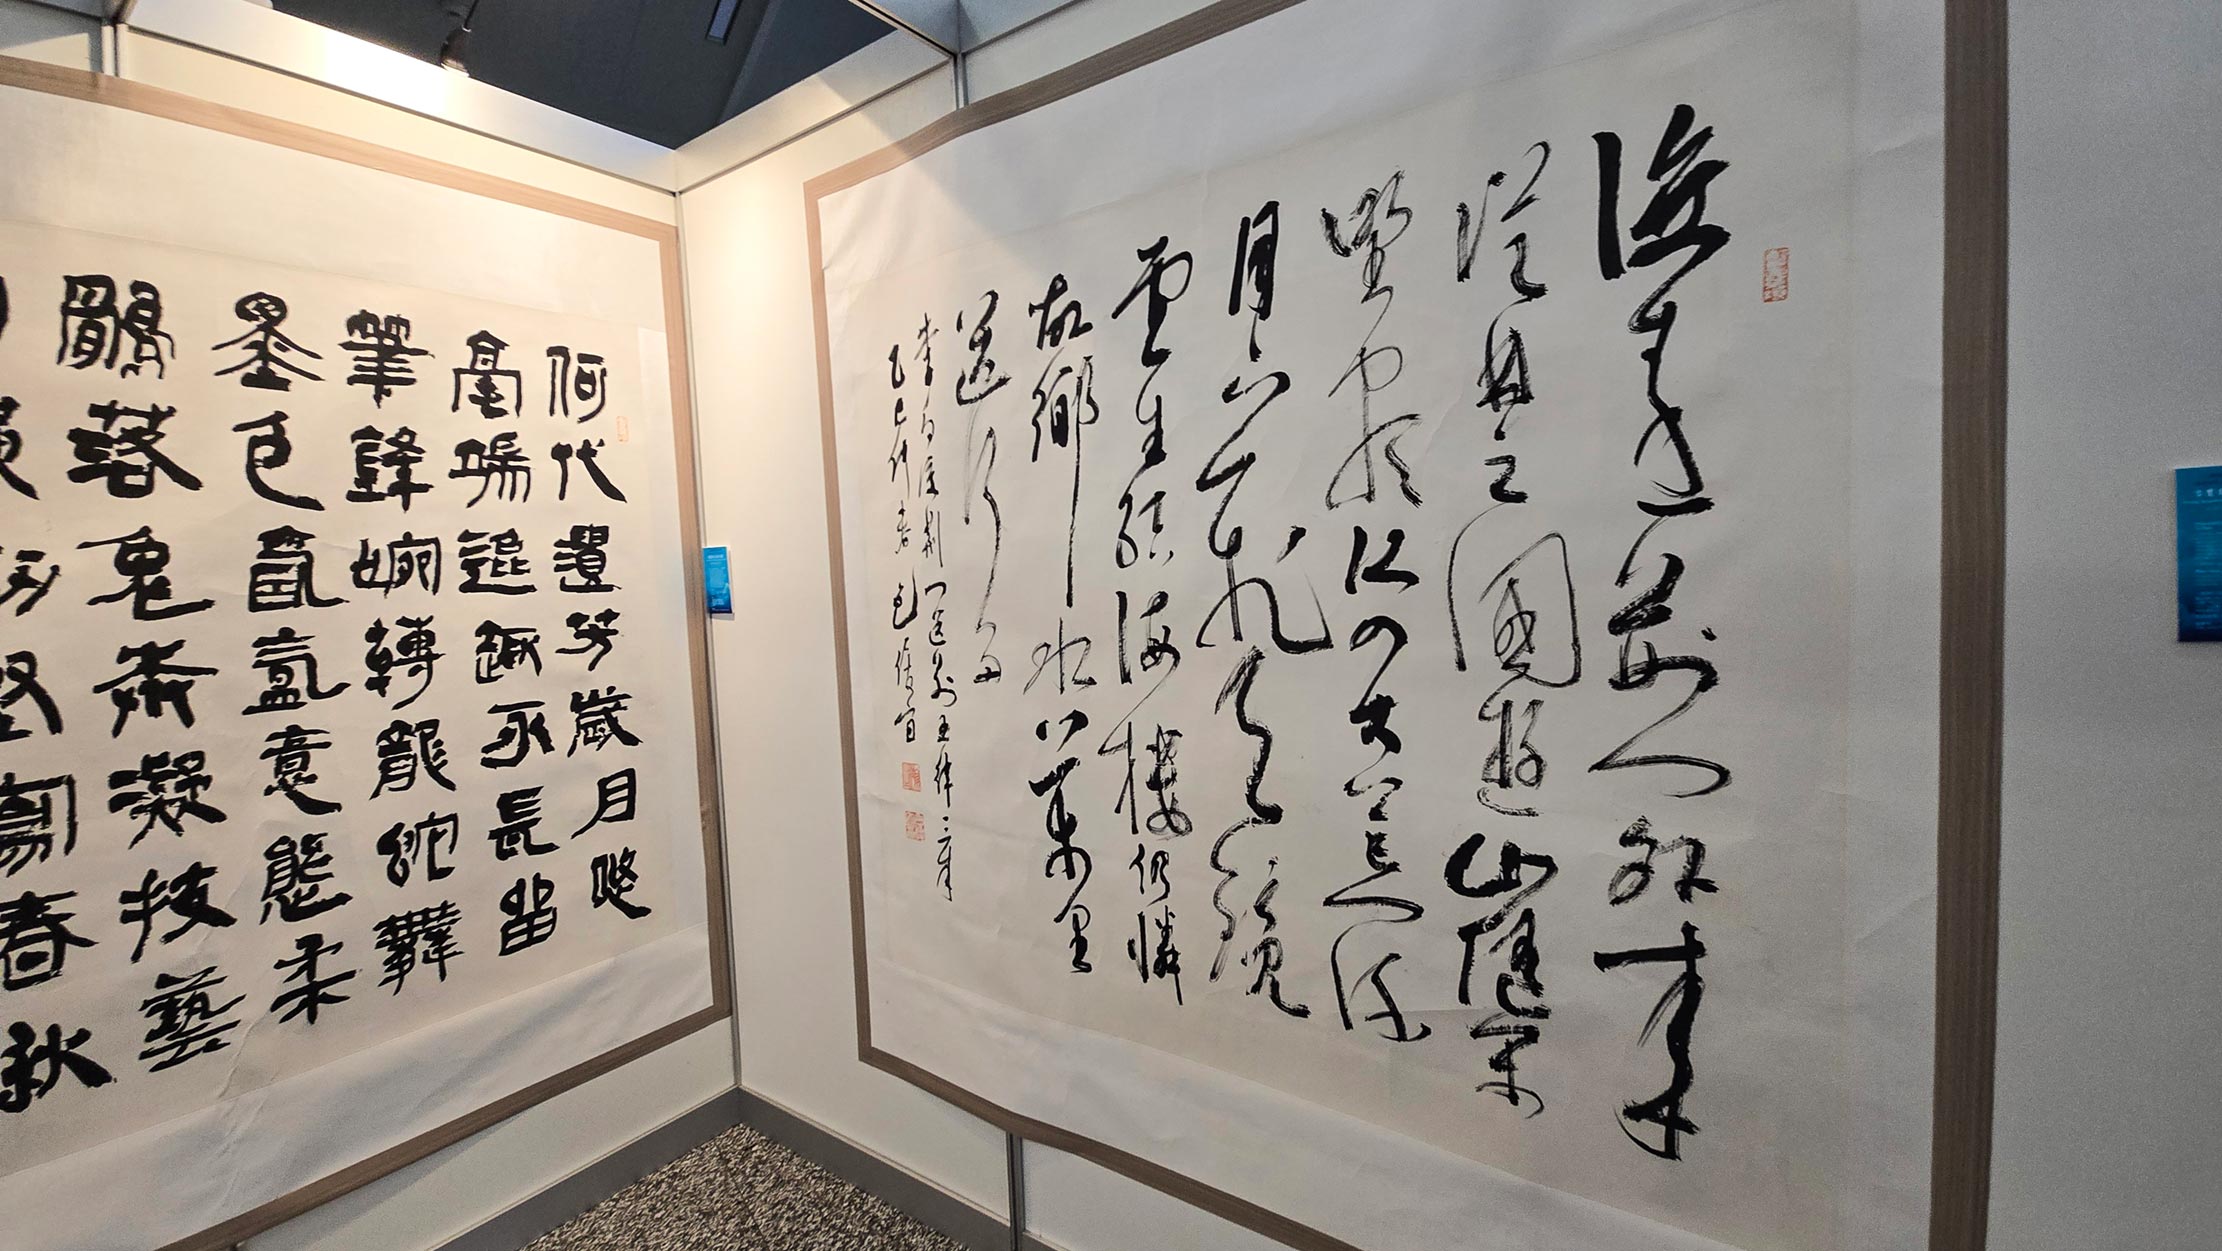 渡遠荊門外來
從楚國遊山隨平
野盡江入大荒流
月下飛天鏡
雲生結海樓仍憐
故鄉水萬里
送行舟
李白渡荊門送別五律一章
乙巳仲春
何代遺芳歲月悠
毫端逸趣永長留
筆鋒婉轉龍蛇舞
墨色氤氳意態柔
鶻落兔奔凝技藝
寫春秋